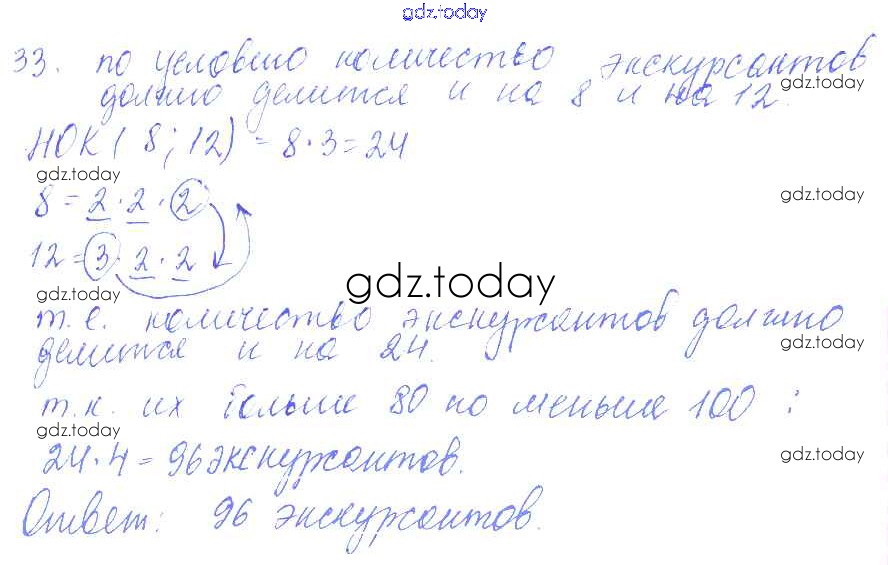 gdz.today
33. по условию количество экскурсантов
gdz.today
должно делится и на 8 и на 12.
НОК (8; 12) = 8·3=24
gdz.today
8 = 2·2·2
gdz.today
12 = 3·2·2
gdz.today
gdz.today
т.е. количество экскурсантов должно
gdz.today
делится и на 24.
т.к. их больше 80 но меньше 100 :
gdz.today
24·4 = 96 экскурсантов.
gdz.today
Ответ: 96 экскурсантов.